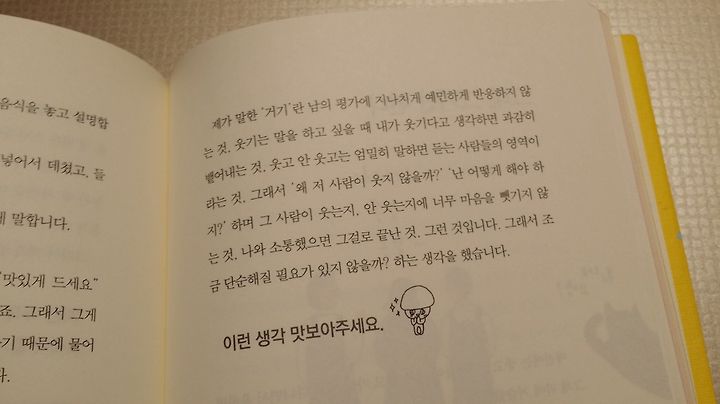 음식을 놓고 설명합
넣어서 데쳤고, 들
게 말합니다.
"맛있게 드세요"
죠. 그래서 그게
기 때문에 물어
다.
제가 말한 '거기'란 남의 평가에 지나치게 예민하게 반응하지 않
는 것, 웃기는 말을 하고 싶을 때 내가 웃기다고 생각하면 과감히
뱉어내는 것, 웃고 안 웃고는 엄밀히 말하면 듣는 사람들의 영역이
라는 것. 그래서 '왜 저 사람이 웃지 않을까?' '난 어떻게 해야 하
지?' 하며 그 사람이 웃는지, 안 웃는지에 너무 마음을 뺏기지 않
는 것, 나와 소통했으면 그걸로 끝난 것. 그런 것입니다. 그래서 조
금 단순해질 필요가 있지 않을까? 하는 생각을 했습니다.
이런 생각 맛보아주세요.